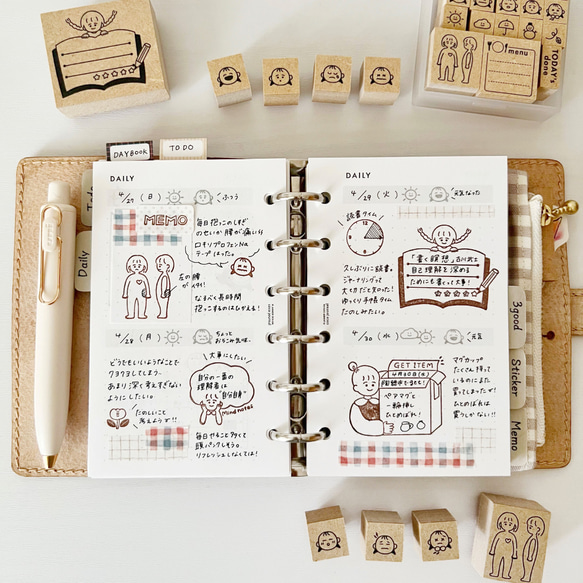 TODAY's
done
menu
DAYBOOK
TO DO
Daily
DAILY
4/27 (日) ふつう
MEMO
毎日抱っこのしすぎ
のせいか腰が痛い
ロキソプロフェンNa
テープはった。
左の腰
がイタイ!
なるべく長時間
抱っこするのはひかえる!
4/28 (月) ちょっと
おちこみ気味。
どうでもいいようなことで
クヨクヨしてしまう。
あまり深く考えすぎない
ようにしたい。
たのしいこと
考えようず!!
大事にしたい
自分の一番の
理解者は
"自分自身"
mind notes
毎日やること多くて
頭パンクしそう。
リフレッシュしなくては!
DAILY
4/29 (火) 元気なった
読書タイム
久しぶりに読書。
ジャーナリングって
大切だなと知った!
ゆっくり手帳タイム
たのしみたい。
「書く瞑想」
自己理解を深める
ためにも書くって大事!
4/30 (水) 元気
GET ITEM
4月30日(水)
ペアマグと
一輪挿し
ひとめぼれ!
マグカップ
たくさん持って
いるのにまた
買ってしまったが!
ひとめぼれは
買うしかない!!
3good
Sticker
Memo